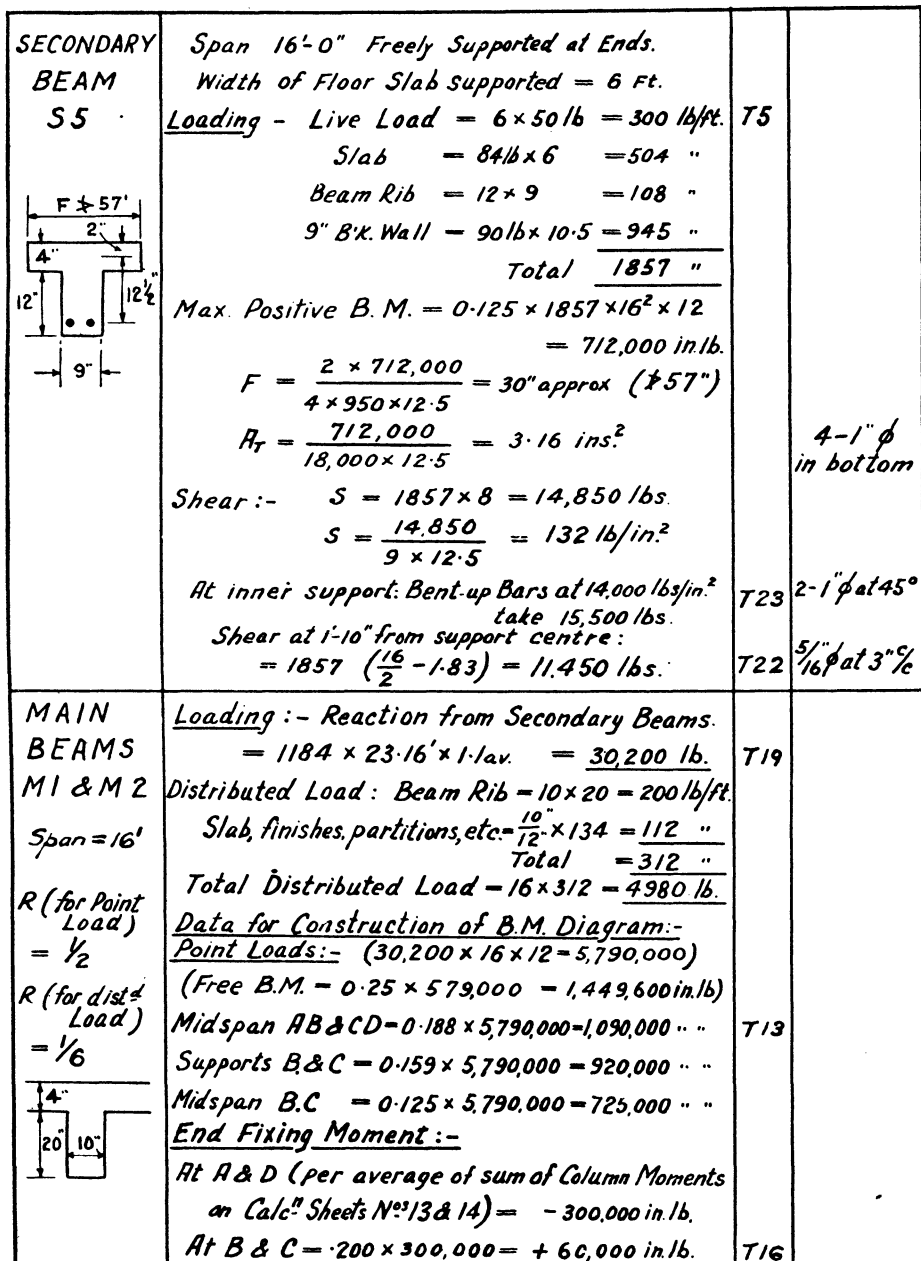 SECONDARY
BEAM
S5
F ≯ 57'
2"
4"
12"
12½"
9"
Span 16'-0" Freely Supported at Ends.
Width of Floor Slab supported = 6 Ft.
Loading - Live Load = 6 × 50 lb = 300 lb/ft. T5
Slab = 84 lb × 6 = 504 "
Beam Rib = 12 × 9 = 108 "
9" B'K. Wall = 90 lb × 10·5 = 945 "
Total 1857 "
Max. Positive B.M. = 0·125 × 1857 × 16² × 12
= 712,000 in.lb.
F = 2 × 712,000 / 4 × 950 × 12·5 = 30" approx (≯57")
A_T = 712,000 / 18,000 × 12·5 = 3·16 ins.² 4-1"ϕ
in bottom
Shear:- S = 1857 × 8 = 14,850 lbs.
s = 14,850 / 9 × 12·5 = 132 lb/in.²
At inner support: Bent-up Bars at 14,000 lbs/in.² T23 2-1"ϕ at 45°
take 15,500 lbs.
Shear at 1'-10" from support centre:
= 1857 (16/2 - 1·83) = 11.450 lbs. T22 5/16"ϕ at 3" c/c
MAIN
BEAMS
M1 & M2
Span = 16'
R (for Point
Load)
= ½
R (for distd
Load)
= 1/6
4"
20"
10"
Loading :- Reaction from Secondary Beams.
= 1184 × 23·16' × 1·1av. = 30,200 lb. T19
Distributed Load: Beam Rib = 10 × 20 = 200 lb/ft.
Slab, finishes, partitions, etc. = 10"/12 × 134 = 112 "
Total = 312 "
Total Distributed Load = 16 × 312 = 4980 lb.
Data for Construction of B.M. Diagram:-
Point Loads:- (30,200 × 16 × 12 = 5,790,000)
(Free B.M. = 0·25 × 579,000 = 1,449,600 in.lb)
Midspan AB & CD = 0·188 × 5,790,000 = 1,090,000 " " T13
Supports B. & C = 0·159 × 5,790,000 = 920,000 " "
Midspan B.C = 0·125 × 5.790,000 = 725,000 " "
End Fixing Moment :-
At A & D (per average of sum of Column Moments
on Calcn Sheets Nos 13 & 14) = - 300,000 in.lb.
At B & C = ·200 × 300,000 = + 60,000 in.lb. T16